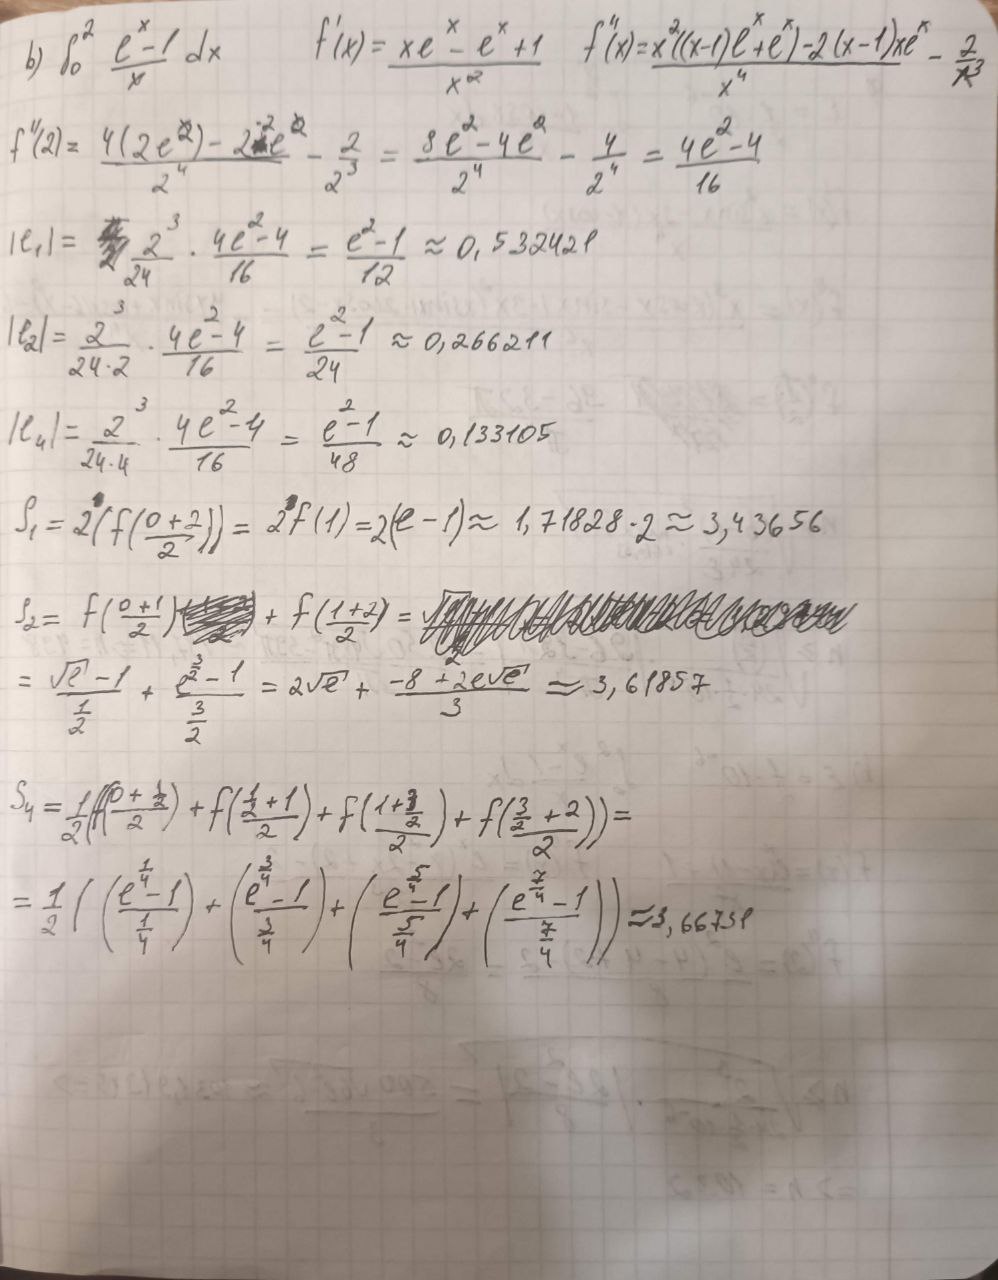 b) ∫₀² (e^x - 1)/x dx    f'(x) = (xe^x - e^x + 1)/x²    f''(x) = (x²((x-1)e^x + e^x) - 2(x-1)xe^x)/x⁴ - 2/x³
f''(2) = (4(2e²) - 2·2e²)/2⁴ - 2/2³ = (8e² - 4e²)/2⁴ - 4/2⁴ = (4e² - 4)/16
|e₁| = 2³/24 · (4e² - 4)/16 = (e² - 1)/12 ≈ 0,532421
|e₂| = 2³/(24·2) · (4e² - 4)/16 = (e² - 1)/24 ≈ 0,266211
|e₄| = 2³/(24·4) · (4e² - 4)/16 = (e² - 1)/48 ≈ 0,133105
S₁ = 2(f((0+2)/2)) = 2f(1) = 2(e - 1) ≈ 1,71828·2 ≈ 3,43656
S₂ = f((0+1)/2) + f((1+2)/2) =
= (√e - 1)/(1/2) + (e^(3/2) - 1)/(3/2) = 2√e + (-8 + 2e√e)/3 ≈ 3,61857
S₄ = 1/2(f((0 + 1/2)/2) + f((1/2 + 1)/2) + f((1 + 3/2)/2) + f((3/2 + 2)/2)) =
= 1/2(((e^(1/4) - 1)/(1/4)) + ((e^(3/4) - 1)/(3/4)) + ((e^(5/4) - 1)/(5/4)) + ((e^(7/4) - 1)/(7/4))) ≈ 3,66731